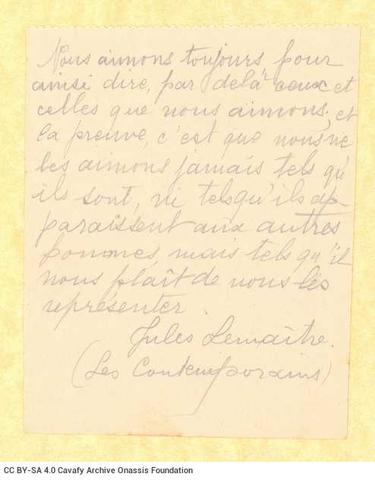 Nous aimons toujours pour
ainsi dire, par delà ceux et
celles que nous aimons, et
la preuve, c'est que nous ne
les aimons jamais tels qu'
ils sont, ni tels qu'ils ap-
paraissent aux autres
hommes, mais tels qu'il
nous plaît de nous les
représenter.
Jules Lemaître.
(Les Contemporains)
CC BY-SA 4.0 Cavafy Archive Onassis Foundation